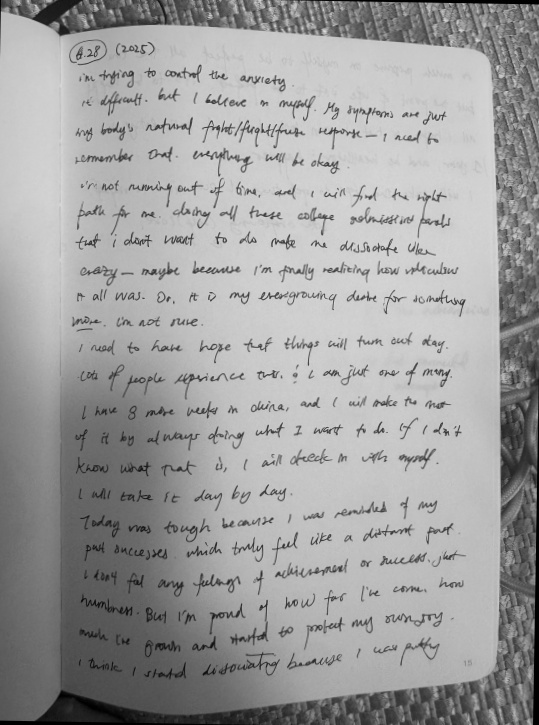 4.28 (2025)
i'm trying to control the anxiety.
it difficult. but I believe in myself. My symptoms are just
my body's natural fight/flight/freeze response — I need to
remember that. everything will be okay.
i'm not running out of time, and i will find the right
path for me. doing all these college admissions panels
that i don't want to do make me dissociate like
crazy — maybe because I'm finally realizing how ridiculous
it all was. Or, it is my evergrowing desire for something
more. i'm not sure.
I need to have hope that things will turn out okay.
Lots of people experience this. & I am just one of many.
I have 8 more weeks in china, and I will make the most
of it by always doing what I want to do. If I don't
know what that is, I will check in with myself.
I will take it day by day.
Today was tough because I was reminded of my
past successes. which truly feel like a distant past.
i don't feel any feelings of achievement or success. just
numbness. But I'm proud of how far I've come. how
much I've grown and started to protect my own joy.
I think I started dissociating because I was putting
15